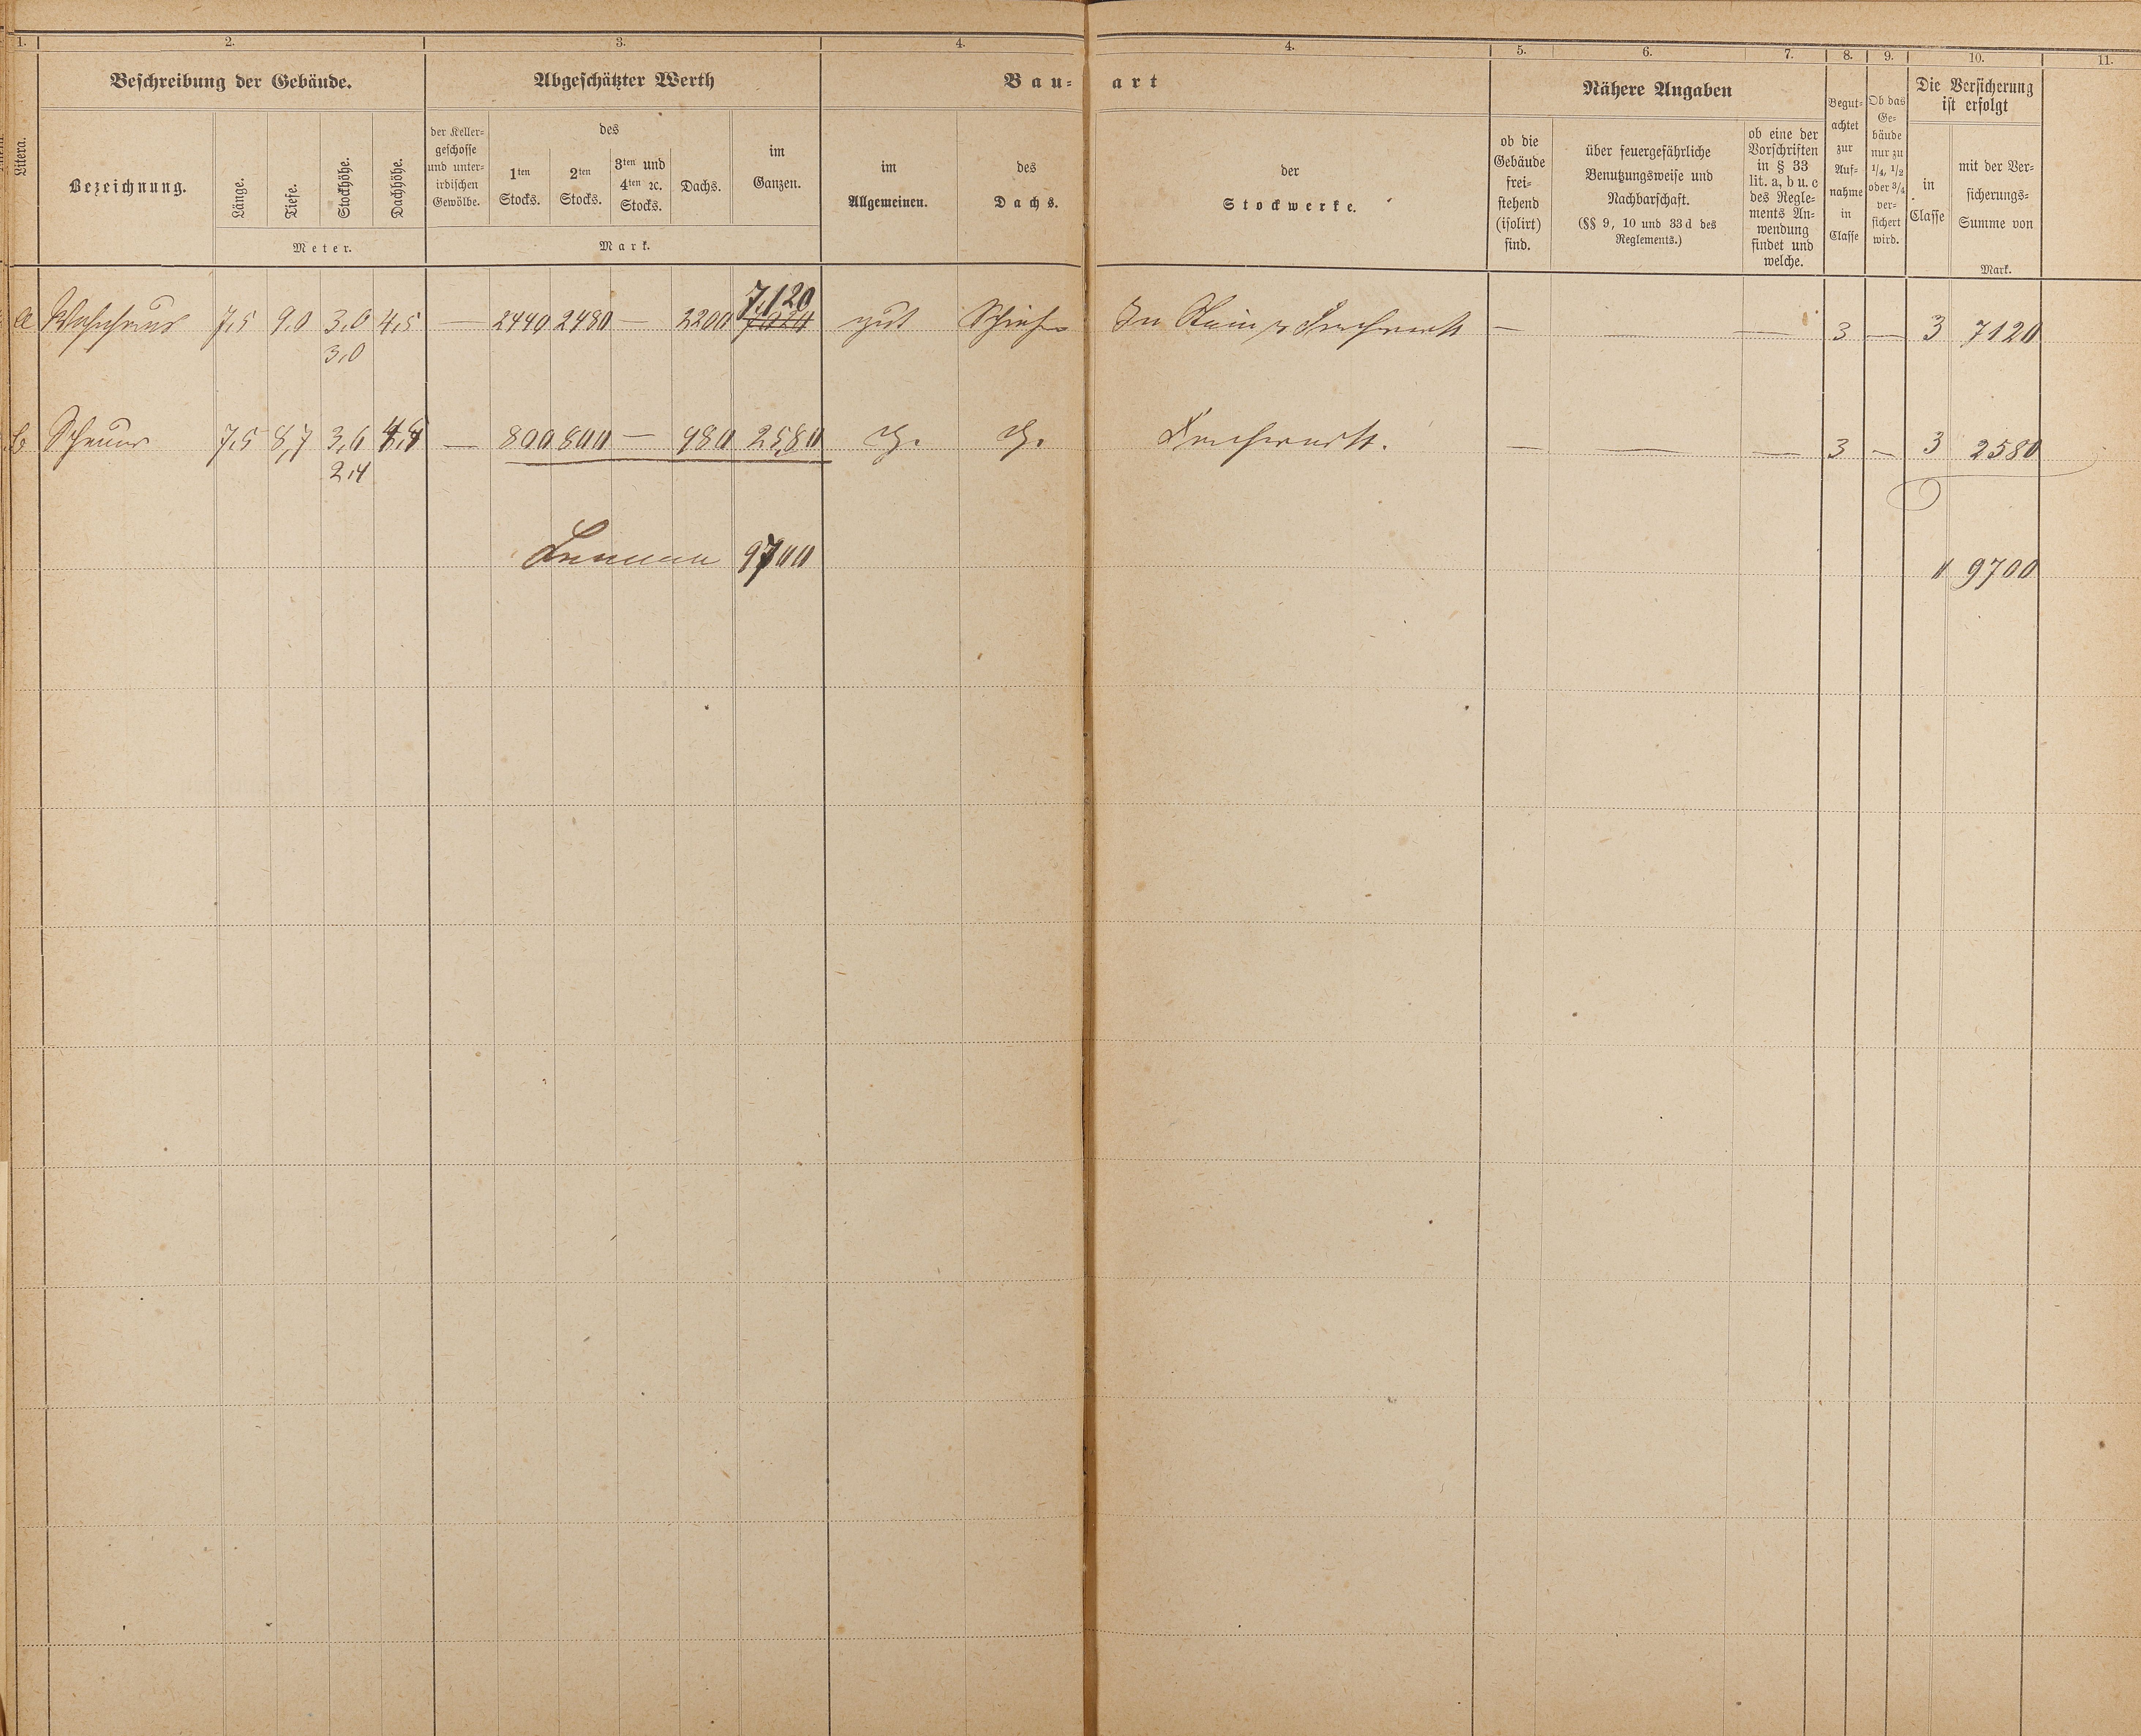 1. 2. 3. 4. 4. 5. 6. 7. 8. 9. 10. 11.
Litera.
Beschreibung der Gebäude.
Bezeichnung.
Länge.
Tiefe.
Stockhöhe.
Dachhöhe.
Meter.
Abgeschätzter Werth
der Keller-
geschosse
und unter-
irdischen
Gewölbe.
des
1ten
Stocks.
2ten
Stocks.
3ten und
4ten ꝛc.
Stocks.
Dachs.
im
Ganzen.
Mark.
Bau- art
im
Allgemeinen.
des
Dachs.
der
Stockwerke.
Nähere Angaben
ob die
Gebäude
frei-
stehend
(isolirt)
sind.
über feuergefährliche
Benutzungsweise und
Nachbarschaft.
(§§ 9, 10 und 33 d des
Reglements.)
ob eine der
Vorschriften
in § 33
lit. a, b u. c
des Regle-
ments An-
wendung
findet und
welche.
Begut-
achtet
zur
Auf-
nahme
in
Classe
Ob das
Ge-
bäude
nur zu
1/4, 1/2
oder 3/4
ver-
sichert
wird.
Die Versicherung
ist erfolgt
in
Classe
mit der Ver-
sicherungs-
Summe von
Mark.
7,120
a Wohnhaus 7,5 9,0 3,0 4,5 — 2440 2480 — 2200 gut Schiefer In Stein u Fachwerk — — — 3 — 3 7120
3,0
b Scheuer 7,5 8,7 3,6 4,8 — 800 800 — 980 2580 d. d. Fachwerk. — — — 3 — 3 2580
2,4
Summa 9700 " 9700